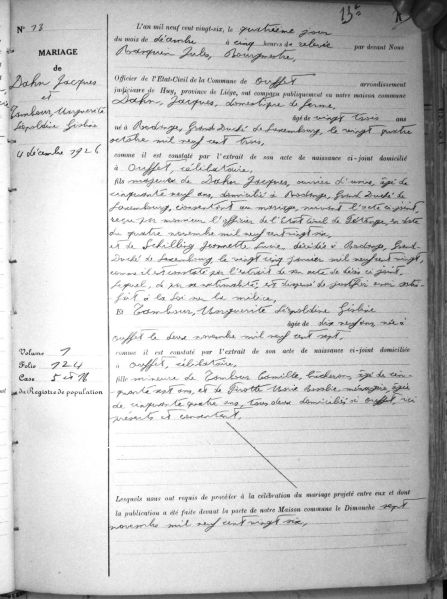 N° 13
MARIAGE
de
Dahn Jacques
et
Tambour, Marguerite
Léopoldine Gisline
4 décembre 1926
Volume 1
Folio 124
Case 5 et 16
du Registre de population
13
L'an mil neuf cent vingt-six, le quatrième jour
du mois de décembre à cinq heures de relevée par devant Nous
Jules, Bourgmestre,
Officier de l'Etat-Civil de la Commune de Ouffet arrondissement
judiciaire de Huy, province de Liège, ont comparu publiquement en notre maison commune
Dahn, Jacques, domestique de ferme,
âgé de vingt trois ans
né à Rodange, Grand Duché de Luxembourg, le vingt quatre
octobre mil neuf cent trois,
comme il est constaté par l'extrait de son acte de naissance ci-joint domicilié
à Ouffet, célibataire,
fils majeur de Dahn Jacques, ouvrier d'usine, âgé de
cinquante neuf ans, domicilié à Rodange, Grand Duché de
Luxembourg, consentant au mariage suivant l'acte ci-joint,
reçu par monsieur l'officier de l'Etat Civil de Pétange, en date
du quatre novembre mil neuf cent vingt six,
et de Schilling Jeannette Lucie, décédée à Rodange, Grand
Duché de Luxembourg, le vingt cinq janvier mil neuf cent vingt,
comme il est constaté par l'extrait de son acte de décès ci-joint.
Lequel, de par sa nationalité, est dispensé de justifier avoir satis-
fait à la loi sur la milice,
Et Tambour, Marguerite Léopoldine Gisline
âgée de dix neuf ans, née à
Ouffet le deux novembre mil neuf cent sept,
comme il est constaté par l'extrait de son acte de naissance ci-joint domiciliée
à Ouffet, célibataire,
fille mineure de Tambour Camille, âgé de cin-
quante sept ans, et de Pirotte Marie ménagère, âgée
de cinquante quatre ans, tous deux domiciliés à Ouffet, ici
présents et consentant,
Lesquels nous ont requis de procéder à la célébration du mariage projeté entre eux et dont
la publication a été faite devant la porte de notre Maison commune le Dimanche sept
novembre mil neuf cent vingt six,